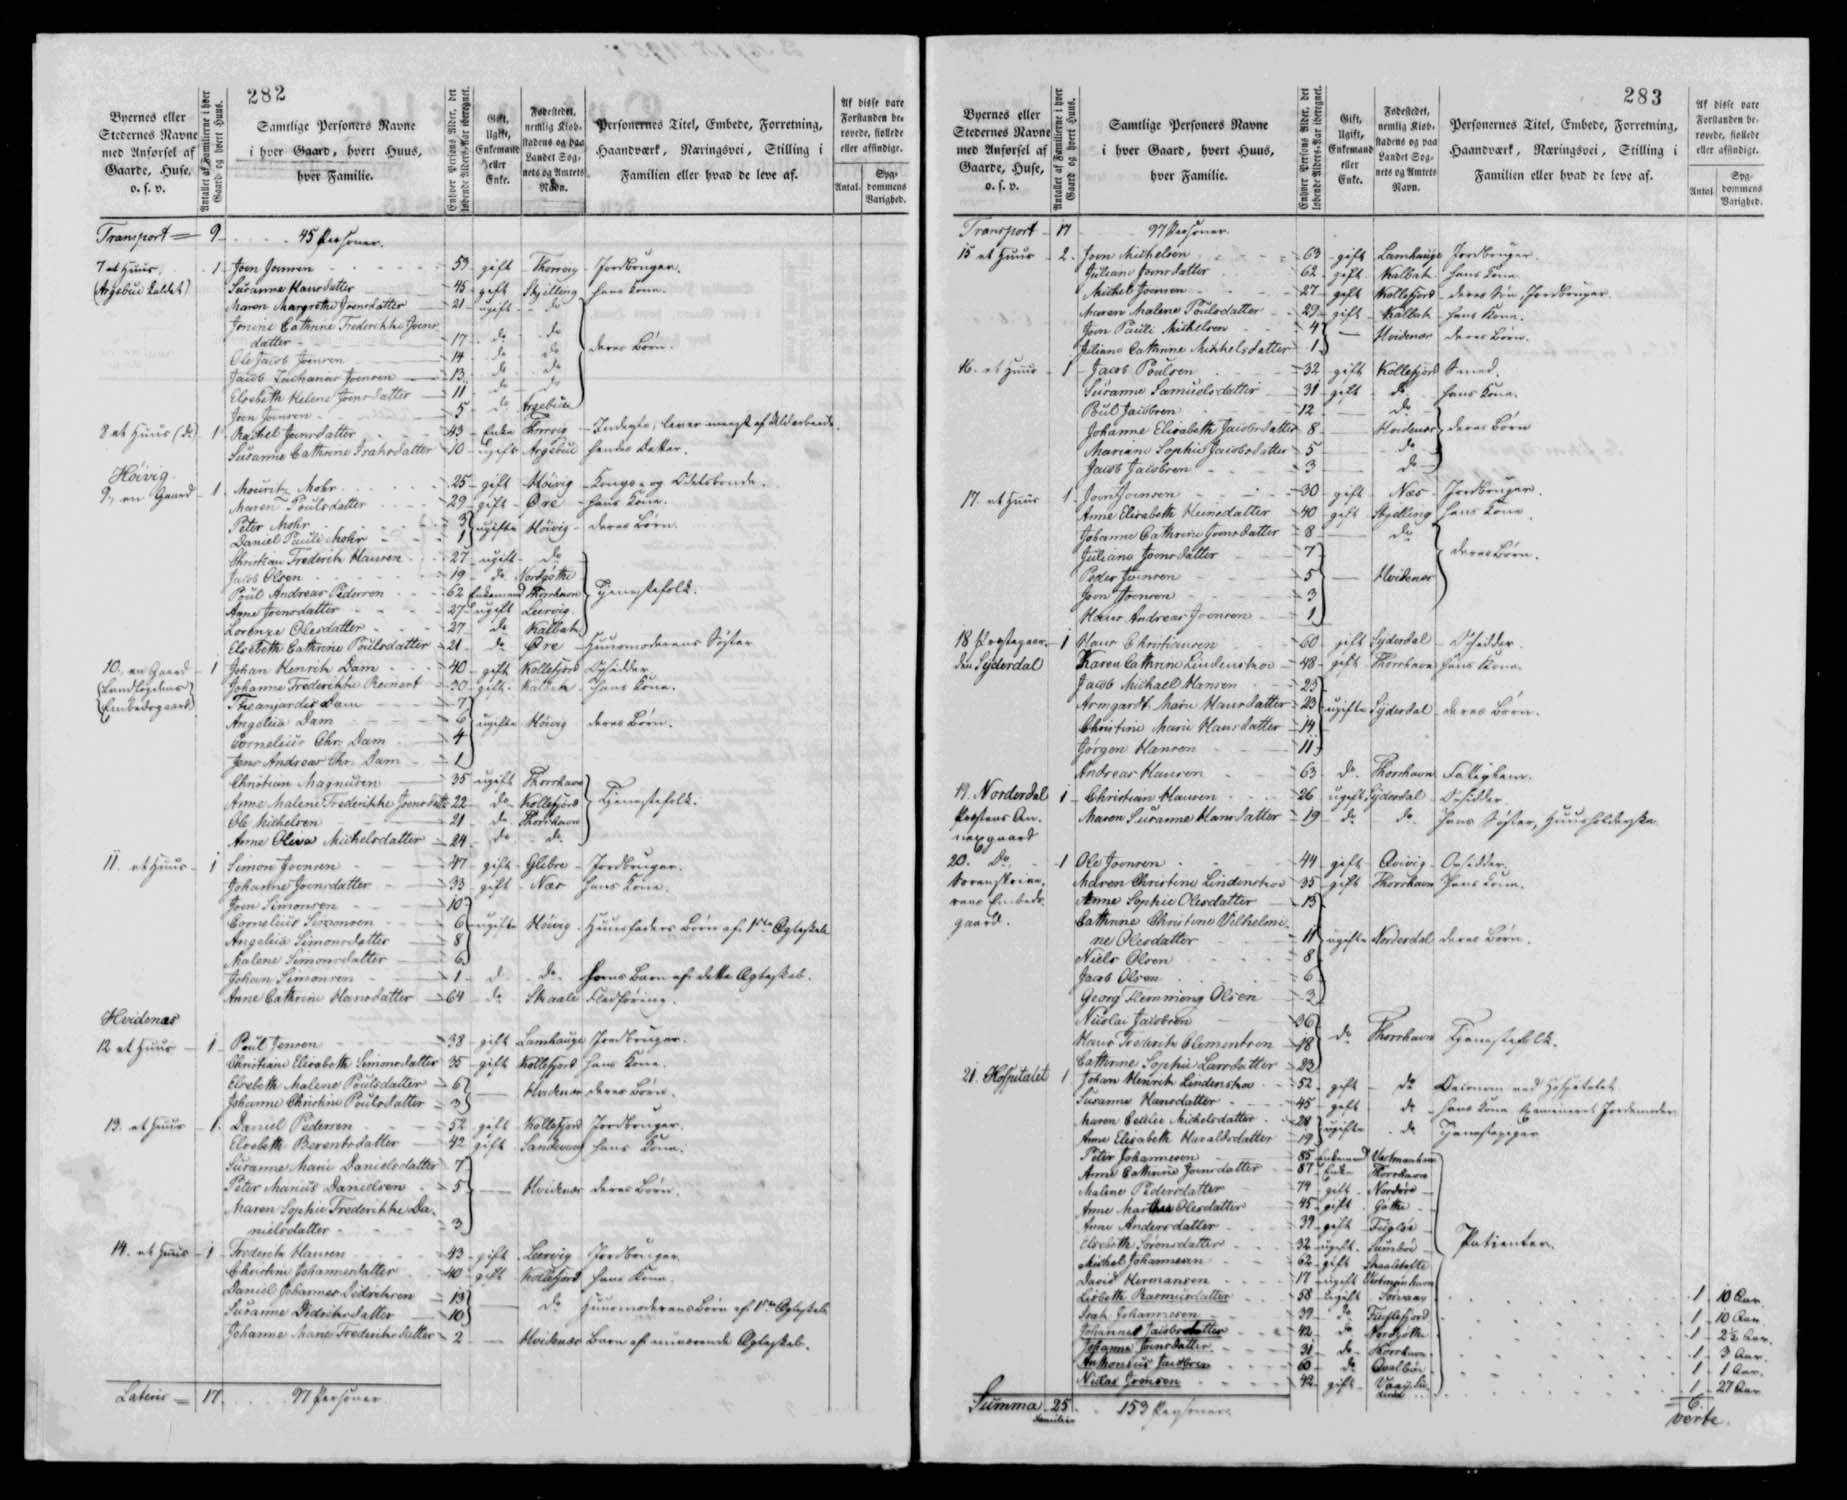 282
Byernes eller Stedernes Navne med Anførsel af Gaarde, Huse, o. s. v.
Antallet af Familierne i hver Gaard og hvert Huus.
Samtlige Personers Navne i hver Gaard, hvert Huus, hver Familie.
Enhver Persons Alder, det løbende Alders-Aar iberegnet.
Gift, Ugift, Enkemand eller Enke.
Fødestedet, nemlig Kiøbstadens og paa Landet Sognets og Amtets Navn.
Personernes Titel, Embede, Forretning, Haandværk, Næringsvei, Stilling i Familien eller hvad de leve af.
Af disse vare Forstanden berøvede, fiollede eller affindige.
Antal. Sygdommens Varighed.
Transport = 9 45 Personer.
7 et Huus 1 Joen Joensen 53 gift Thorsvig Jordbruger.
(Argebui kaldet) Susanne Hansdatter 45 gift Skjelling hans Kone.
Maren Margrethe Joensdatter 21 ugift do
Cathrine Frederikke Joens
datter 17 do do deres Børn.
Ole Jacob Joensen 14 do do
Jacob Zacharias Joensen 13 do do
Elsebeth Helene Joensdatter 11 do do
Joen Joensen 5 do Argebui
8 et Huus (do) 1 Rachel Joensdatter 43 Enke Thorsvig
Susanne Cathrine 10 ugift Argebui hendes Datter.
Höivig
9, en Gaard 1 Mouritz Mohr 25 gift Höivig Konge- og Odelsbonde.
Maren Poulsdatter 29 gift Øre hans Kone.
Peter Mohr 3 ugifte Höivig deres Børn.
Daniel Pauli Mohr 1
Christian Frederik Hansen 27 ugift do
Jacob Olsen 19 do Nordgöthe
Poul Andreas Pedersen 62 Enkemand Thorshavn Tjenestefolk.
Anne Joensdatter 27 ugift Leervig
Lorenze Olesdatter 27 do Kalbak
Elsebeth Cathrine Poulsdatter 21 do Øre Huusmoderens Søster
10, en Gaard 1 Johan Henrik Dam 40 gift Kollefjord Opsidder
(Landfogdens Johanne Frederikke Reinert 30 gift Kalbak hans Kone.
Embedsgaard) Dam 7
Angelia Dam 6 ugifte Höivig deres Børn.
Cornelius Chr. Dam 4
Jens Andreas Chr. Dam 1
Christian Magnusen 35 ugift Thorshavn
Anne Malene Frederikke Joensdatter 22 do Kollefjord Tjenestefolk.
Ole Michelsen 21 do Thorshavn
Anne Olivia Michelsdatter 24 do do
11. et Huus 1 Simon Joensen 47 gift Glibre Jordbruger.
Johanne Joensdatter 33 gift Næs hans Kone.
Joen Simonsen 10
Cornelius Simonsen 6 ugifte Höivig Huusfaders Børn af 1ste Ægteskab
Angelia Simonsdatter 8
Malene Simonsdatter 6
Johan Simonsen 1 d do hans Barn af dette Ægteskab.
Anne Cathrine Hansdatter 64 do Skaale Fledføring.
Hvidenæs
12 et Huus 1 Poul Jensen 38 gift Lamhauge Jordbruger.
Christiane Elisabeth Simonsdatter 35 gift Kollefjord hans Kone.
Elsebeth Malene Poulsdatter 6 Hvidenæs deres Børn.
Johanne Christine Poulsdatter 3
13. et Huus 1 Daniel Pedersen 52 gift Kollefjord Jordbruger.
Elsebeth Berentsdatter 42 gift Sandevaag hans Kone.
Susanne Marie Danielsdatter 7
Peter Marius Danielsen 5 Hvidenæs deres Børn.
Maren Sophie Frederikke Da-
nielsdatter 3
14. et Huus 1 Frederik Hansen 43 gift Leervig Jordbruger
Christine Johannesdatter 40 gift Kollefjord hans Kone.
Daniel Johannes Didriksen 13 do Huusmoderens Børn af 1ste Ægteskab
Susanne Didriksdatter 10
Johanne Marie Frederiksdatter 2 Hvidenæs Barn af nuværende Ægteskab.
Lateris = 17. 97 Personer
283
Byernes eller Stedernes Navne med Anførsel af Gaarde, Huse, o. s. v.
Antallet af Familierne i hver Gaard og hvert Huus.
Samtlige Personers Navne i hver Gaard, hvert Huus, hver Familie.
Enhver Persons Alder, det løbende Alders-Aar iberegnet.
Gift, Ugift, Enkemand eller Enke.
Fødestedet, nemlig Kiøbstadens og paa Landet Sognets og Amtets Navn.
Personernes Titel, Embede, Forretning, Haandværk, Næringsvei, Stilling i Familien eller hvad de leve af.
Af disse vare Forstanden berøvede, fiollede eller affindige.
Antal. Sygdommens Varighed.
Transport 17 97 Personer.
15 et Huus 2 Joen Michelsen 63 gift Lamhauge Jordbruger.
Juliane Joensdatter 62 gift Kalbak hans Kone.
Michel Joensen 27 gift Kollefjord deres Søn, Jordbruger.
Maren Malene Poulsdatter 29 gift Kalbak hans Kone.
Joen Pauli Michelsen 4 Hvidenæs deres Børn.
Juliane Cathrine Michelsdatter 1
16. et Huus 1 Jacob Poulsen 32 gift Kollefjord Smed.
Susanne Samuelsdatter 31 gift do hans Kone.
Poul Jacobsen 12 do
Johanne Elisabeth Jacobsdatter 8 Hvidenæs deres Børn
Mariane Sophie Jacobsdatter 5 do
Jacob Jacobsen 3 do
17. et Huus 1 Joen Joensen 30 gift Næs Jordbruger.
Anne Elisabeth Heinesdatter 40 gift Skjelling hans Kone.
Johanne Cathrine Joensdatter 8 do
Juliane Joensdatter 7 deres Børn.
Peder Joensen 5 Hvidenæs
Joen Joensen 3
Hans Andreas Joensen 1
18 Præstegaar- 1 Hans Christiansen 60 gift Syderdal Opsidder.
den Syderdal Karen Cathrine Lindenskov 48 gift Thorshavn hans Kone.
Jacob Michael Hansen 25
Armgardt Marie Hansdatter 23 ugifte Syderdal deres Børn.
Christine Marie Hansdatter 14
Jørgen Hansen 11
Andreas Hansen 63 do Thorshavn Fattiglem.
19. Norderdal 1 Christian Hansen 26 ugift Syderdal Opsidder.
Præstens An- Maren Susanne Hansdatter 19 do do hans Søster, Huusholderske
nexgaard
20. Do 1 Ole Joensen 44 gift Qvivig Opsidder.
Sorenskrive- Maren Christine Lindenskov 35 gift Thorshavn hans Kone.
rens Embeds- Anne Sophie Olesdatter 13
gaard. Cathrine Christine Vilhelmi-
ne Olesdatter 11 ugifte Norderdal deres Børn.
Niels Olsen 8
Jacob Olsen 6
Georg Flemming Olsen 3
Nicolai Jacobsen 26
Hans Frederik Clementsen 18 do Thorshavn Tjenestefolk.
Cathrine Sophie Larsdatter 23
21. Hospitalet 1 Johan Henrik Lindenskov 52 gift do Oeconom ved Hospitalet
Susanne Hansdatter 45 gift do hans Kone, Examineret Jordemoder
Maren Cecilie Michelsdatter 28 ugifte do Tjenestepiger
Anne Elisabeth Haraldsdatter 19
Peter Johannesen 85 Enkemand Vestmanhavn
Anne Cathrine Joensdatter 87 Enke Thorshavn
Malene Pedersdatter 74 gift Nordöre
Anne Marthe Olesdatter 45 gift Göthe
Anne Andersdatter 39 gift Fugløe
Elsebeth Sørensdatter 32 ugift Sumböe Patienter.
Michel Johannesen 62 gift
David Hermansen 17 ugift Vestmanhavn
Lisbeth Rasmusdatter 58 ugift Sörvaag 1 10 Aar.
Johannesen 39 do Fuglefjord 1 10 Aar.
Johanne Jacobsdatter 42 do Nordgöthe 1 2½ Aar.
Johanne Joensdatter 31 do Thorshavn 1 3 Aar.
Anthonius Jacobsen 60 do Qvalböe 1 1 Aar.
Niclas Joensen 42 gift Vaag 1 27 Aar
Summa 25 Familier 153 Personer. 6.
verte.